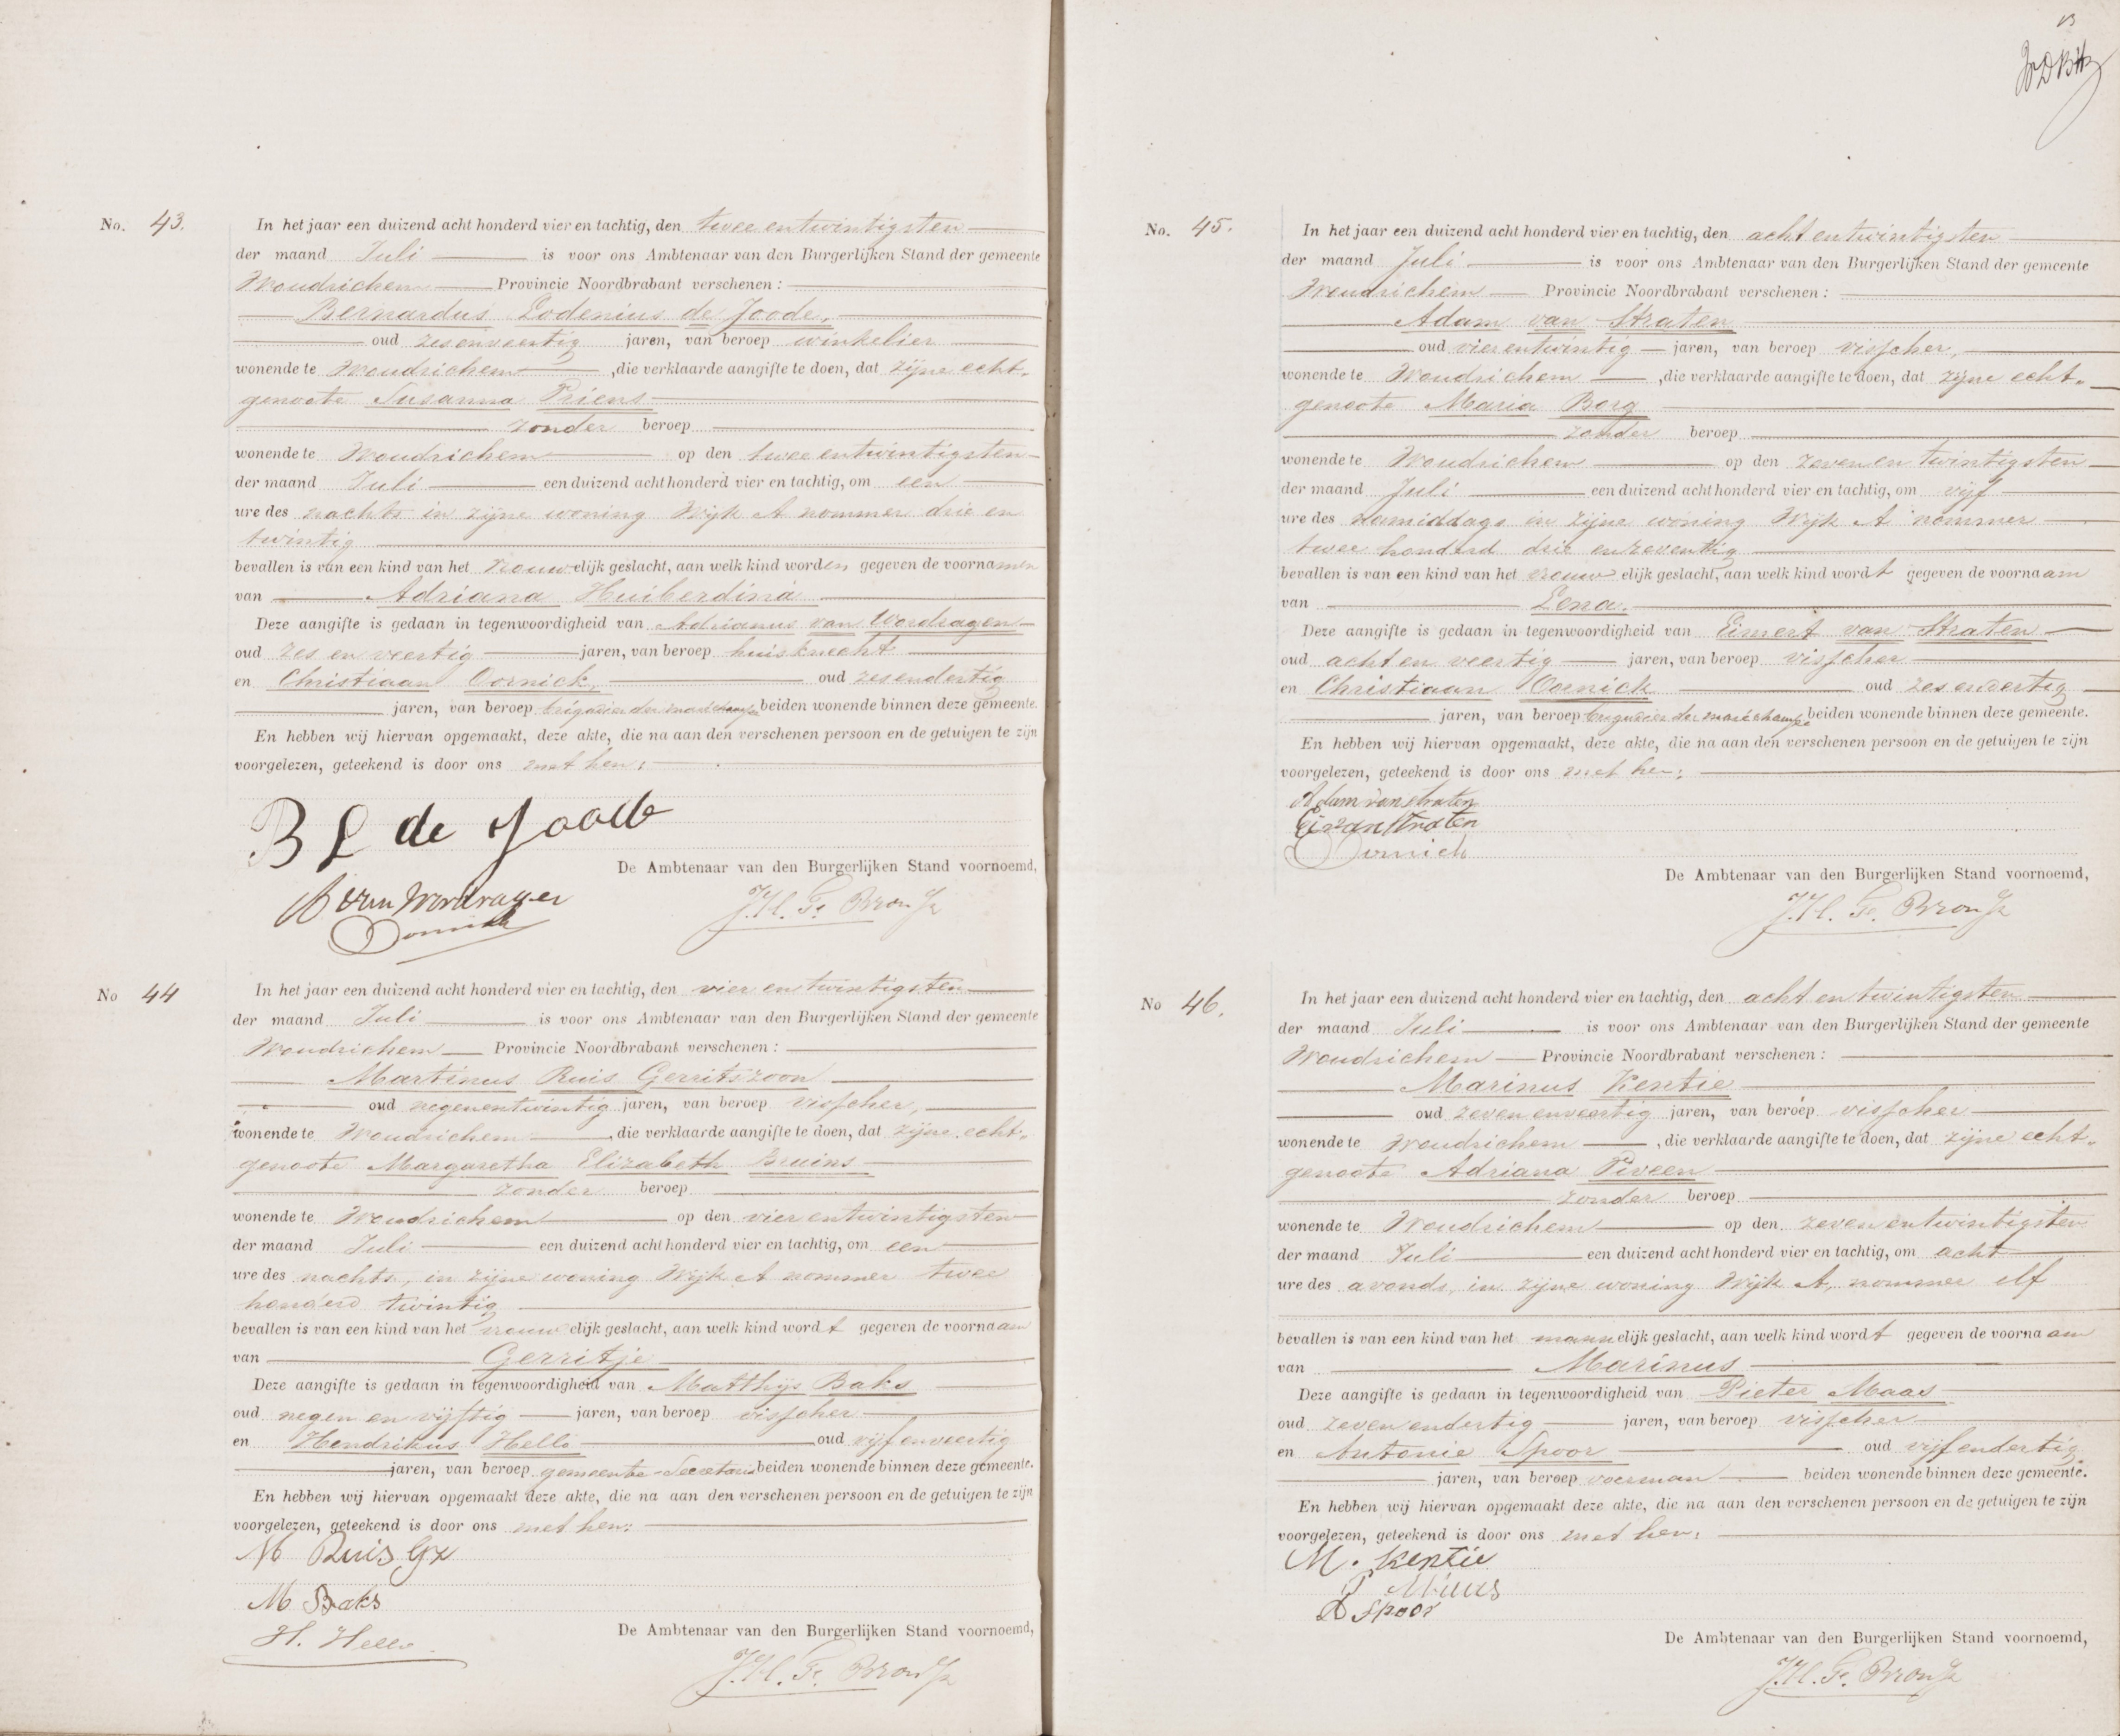 No. 43.
In het jaar een duizend acht honderd vier en tachtig, den twee en twintigsten
der maand Juli is voor ons Ambtenaar van den Burgerlijken Stand der gemeente
Woudrichem Provincie Noordbrabant verschenen:
Bernardus Lodenius de Joode,
oud zesenveertig jaren, van beroep winkelier
wonende te Woudrichem, die verklaarde aangifte te doen, dat zijne echt-
genoote Susanna Priens
zonder beroep
wonende te Woudrichem op den twee entwintigsten
der maand Juli een duizend acht honderd vier en tachtig, om een
ure des nachts in zijne woning Wijk A nommer drie en
twintig
bevallen is van een kind van het vrouwelijk geslacht, aan welk kind worden gegeven de voornamen
van Adriana Huiberdina
Deze aangifte is gedaan in tegenwoordigheid van Adrianus van Wordragen
oud zes en veertig jaren, van beroep huisknecht
en Christiaan Oornick, oud zesendertig
jaren, van beroep brigadier der marechaussée beiden wonende binnen deze gemeente.
En hebben wij hiervan opgemaakt, deze akte, die na aan den verschenen persoon en de getuigen te zijn
voorgelezen, geteekend is door ons met hen:
B L de Joode
De Ambtenaar van den Burgerlijken Stand voornoemd,
A van Wordragen
Oornick
No 44
In het jaar een duizend acht honderd vier en tachtig, den vier en twintigsten
der maand Juli is voor ons Ambtenaar van den Burgerlijken Stand der gemeente
Woudrichem Provincie Noordbrabant verschenen:
Martinus Ruis Gerritszoon
oud negenentwintig jaren, van beroep visscher,
wonende te Woudrichem, die verklaarde aangifte te doen, dat zijne echt-
genoote Margaretha Elizabeth Bruins
zonder beroep
wonende te Woudrichem op den vier entwintigsten
der maand Juli een duizend acht honderd vier en tachtig, om een
ure des nachts, in zijne woning Wijk A nommer twee
honderd twintig
bevallen is van een kind van het vrouwelijk geslacht, aan welk kind wordt gegeven de voornaam
van Gerritje
Deze aangifte is gedaan in tegenwoordigheid van Matthijs Baks
oud negen en vijftig jaren, van beroep visscher
en Hendrikus Hello oud vijfenveertig
jaren, van beroep gemeente-Secretaris beiden wonende binnen deze gemeente.
En hebben wij hiervan opgemaakt deze akte, die na aan den verschenen persoon en de getuigen te zijn
voorgelezen, geteekend is door ons met hen:
M Ruis Gz
M Baks
H. Hello
De Ambtenaar van den Burgerlijken Stand voornoemd,
No. 45.
In het jaar een duizend acht honderd vier en tachtig, den acht entwintigsten
der maand Juli is voor ons Ambtenaar van den Burgerlijken Stand der gemeente
Woudrichem Provincie Noordbrabant verschenen:
Adam van Straten
oud vier entwintig jaren, van beroep visscher,
wonende te Woudrichem, die verklaarde aangifte te doen, dat zijne echt-
genoote Maria Borg
zonder beroep
wonende te Woudrichem op den zeven en twintigsten
der maand Juli een duizend acht honderd vier en tachtig, om vijf
ure des namiddags in zijne woning Wijk A nommer
twee honderd drie enzeventig
bevallen is van een kind van het vrouwelijk geslacht, aan welk kind wordt gegeven de voornaam
van Lena.
Deze aangifte is gedaan in tegenwoordigheid van Eimert van Straten
oud acht en veertig jaren, van beroep visscher
en Christiaan Oornick oud zesendertig
jaren, van beroep brigadier der marechaussée beiden wonende binnen deze gemeente.
En hebben wij hiervan opgemaakt, deze akte, die na aan den verschenen persoon en de getuigen te zijn
voorgelezen, geteekend is door ons met hen:
Adam van straten
Ei van Straten
Oornick
De Ambtenaar van den Burgerlijken Stand voornoemd,
No 46.
In het jaar een duizend acht honderd vier en tachtig, den acht en twintigsten
der maand Juli is voor ons Ambtenaar van den Burgerlijken Stand der gemeente
Woudrichem Provincie Noordbrabant verschenen:
Marinus Kentie
oud zeven enveertig jaren, van beroep visscher
wonende te Woudrichem, die verklaarde aangifte te doen, dat zijne echt-
genoote Adriana Viveen
zonder beroep
wonende te Woudrichem op den zeven entwintigsten
der maand Juli een duizend acht honderd vier en tachtig, om acht
ure des avonds, in zijne woning Wijk A, nommer elf
bevallen is van een kind van het mannelijk geslacht, aan welk kind wordt gegeven de voornaam
van Marinus
Deze aangifte is gedaan in tegenwoordigheid van Pieter Maas
oud zeven endertig jaren, van beroep visscher
en Antonie Spoor oud vijfendertig
jaren, van beroep voerman beiden wonende binnen deze gemeente.
En hebben wij hiervan opgemaakt deze akte, die na aan den verschenen persoon en de getuigen te zijn
voorgelezen, geteekend is door ons met hen:
M. Kentie
P Maas
A Spoor
De Ambtenaar van den Burgerlijken Stand voornoemd,